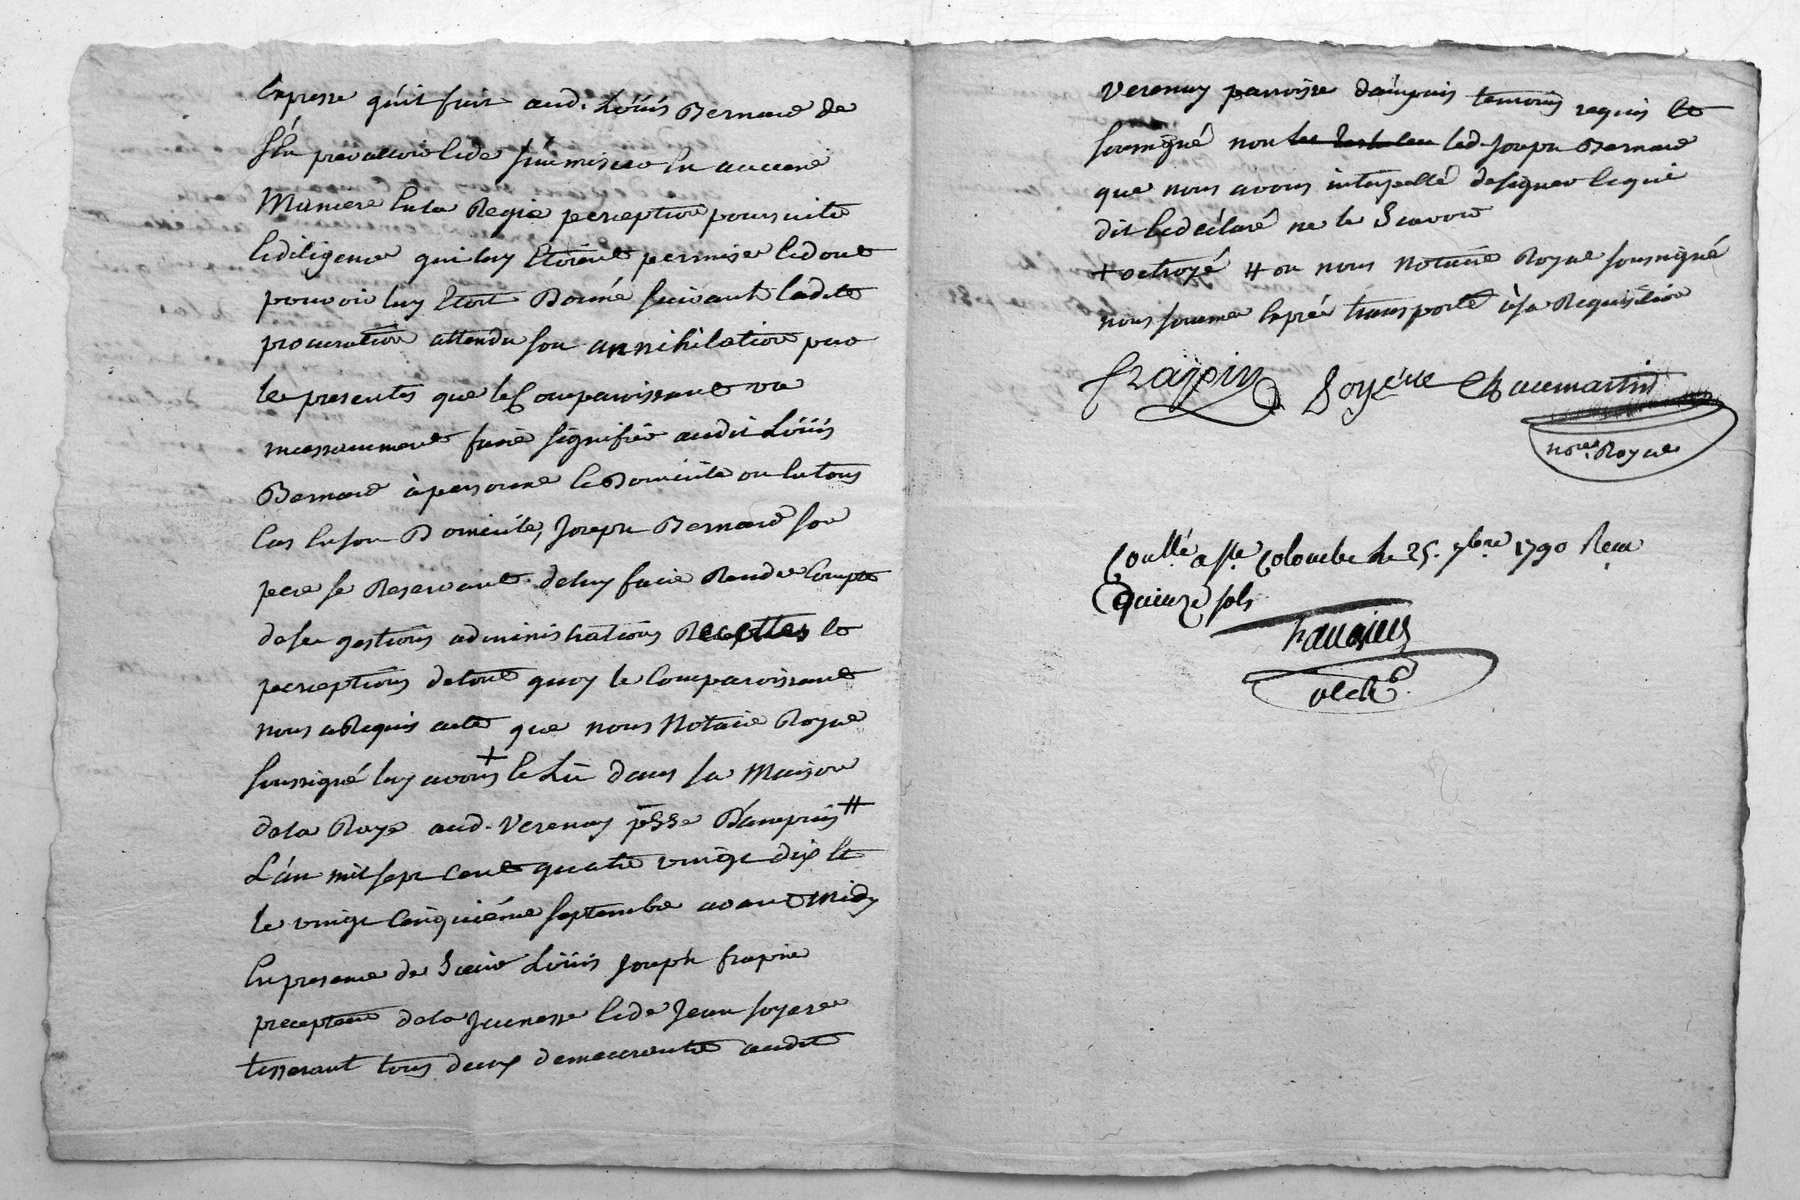 Expresse quil fait aud. Loüis Bernard de
s'En prevalloir Et de s'immiscer En aucune
Maniere En la Regie perception poursuite
Et diligence qui luy Etoient permise Et dont
pouvoir luy Etoit Donné suivant ladite
procuration attendu son annihilation par
les presentes que le Comparoissant va
incessamment faire signifier audit Loüis
Bernard à personne Et Domicile ou En tous
Cas En son Domicile, Joseph Bernard son
pere se Reservant de luy faire Rendre Compte
de ses gestions administrations Recettes Et
perceptions de tout quoy le Comparoissant
nous a Requis acte que nous Notaire Royal
soussigné luy avons + Et Lû dans sa Maison
de la Raye aud. Verenay p̃sse Dampuis #
L'an mil sept Cent quatre vingt dix Et
le vingt Cinquiéme septembre avant Midy
En presence de Sieur Loüis Joseph frapin
precepteur de la Jeunesse Et de Jean soyere
tisserant tous deux demeurants audit
Verenay parroisse dampuis temoins requis Et
soussigné non Led. Joseph Bernard
que nous avons interpellé de signer Et qui
dit Et déclaré ne le Scavoir
+ octroyé # ou nous Notaire Royal soussigné
nous sommes Exprés transporté à sa Requisition
frappin Soyére Chaumartin
no.re Royal
Con.llé a s.te Colombe le 25. 7bre 1790 Reçu
Quinze sols